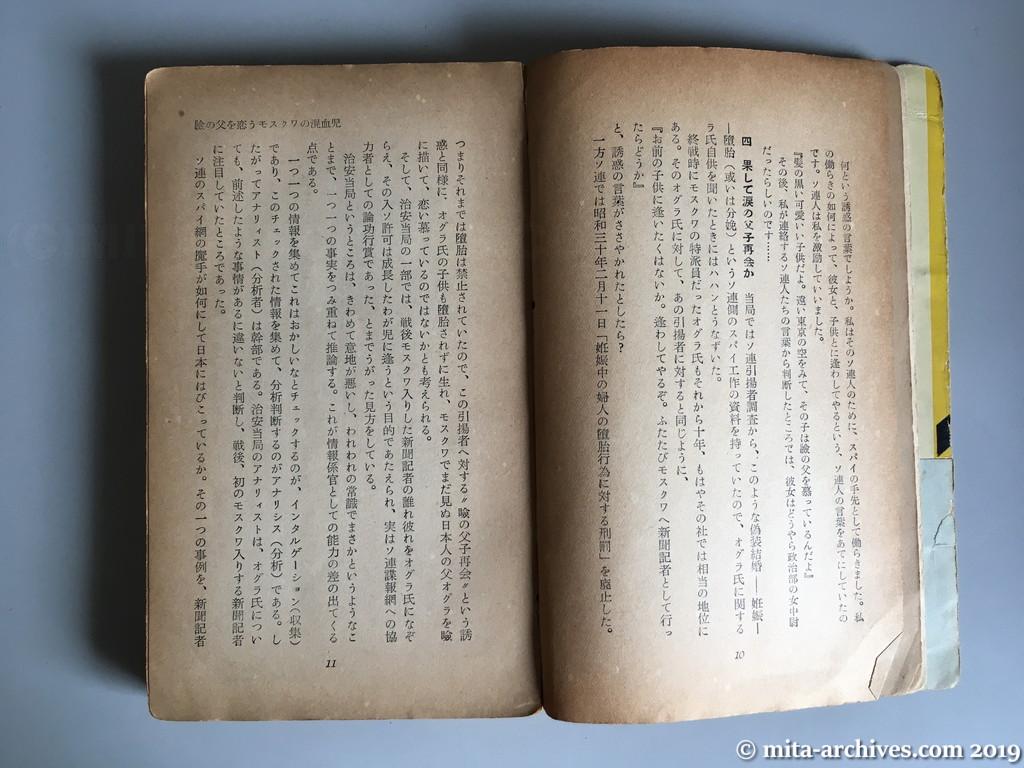 何という誘惑の言葉でしようか。私はそのソ連人のために、スパイの手先として働らきました。私
の働らきの如何によって、彼女と、子供とに逢わしてやるという、ソ連人の言葉をあてにしていたの
です。ソ連人は私を激励していいました。
『髪の黒い可愛いい子供だよ。遠い東京の空をみて、その子は瞼の父を慕っているんだよ』
その後、私が連絡するソ連人たちの言葉から判断したところでは、彼女はどうやら政治部の女中尉
だったらしいのです……
四 果して涙の父子再会か 当局ではソ連引揚者調査から、このような偽装結婚――妊娠―
―堕胎（或いは分娩）というソ連側のスパイ工作の資料を持っていたので、オグラ氏に関する
ラ氏自供を聞いたときにはハハンとうなずいた。
終戦時にモスクワの特派員だったオグラ氏もそれから十年、もはやその社では相当の地位に
ある。そのオグラ氏に対して、あの引揚者に対すると同じように、
『お前の子供に逢いたくはないか。逢わしてやるぞ。ふたたびモスクワへ新聞記者として行っ
たらどうか』
と、誘惑の言葉がささやかれたとしたら？
一方ソ連では昭和三十年二月十一日「妊娠中の婦人の堕胎行為に対する刑罰」を廃止した。
10
瞼の父を恋うモスクワの混血児
つまりそれまでは堕胎は禁止されていたので、この引揚者へ対する〝瞼の父子再会〟という誘
惑と同様に、オグラ氏の子供も堕胎されずに生れ、モスクワでまだ見ぬ日本人の父オグラを瞼
に描いて、恋い慕っているのではないかとも考えられる。
そして、治安当局の一部では、戦後モスクワ入りした新聞記者の誰れ彼れをオグラ氏になぞ
らえ、その入ソ許可は成長したわが児に逢うという目的であたえられ、実はソ連諜報網への協
力者としての論功行賞であった、とまでうがった見方をしている。
治安当局というところは、きわめて意地が悪いし、われわれの常識でまさかというようなこ
とまで、一つ一つの事実をつみ重ねて推論する。これが情報係官としての能力の差の出てくる
点である。
一つ一つの情報を集めてこれはおかしいなとチェックするのが、インタルゲーション（収集）
であり、このチェックされた情報を集めて、分析判断するのがアナリシス（分析）である。し
たがってアナリィスト（分析者）は幹部である。治安当局のアナリィストは、オグラ氏につい
ても、前述したような事情があるに違いないと判断し、戦後、初のモスクワ入りする新聞記者
に注目していたところであった。
ソ連のスパイ網の魔手が如何にして日本にはびこっているか。その一つの事例を、新聞記者
11
© mita-archives.com 2019